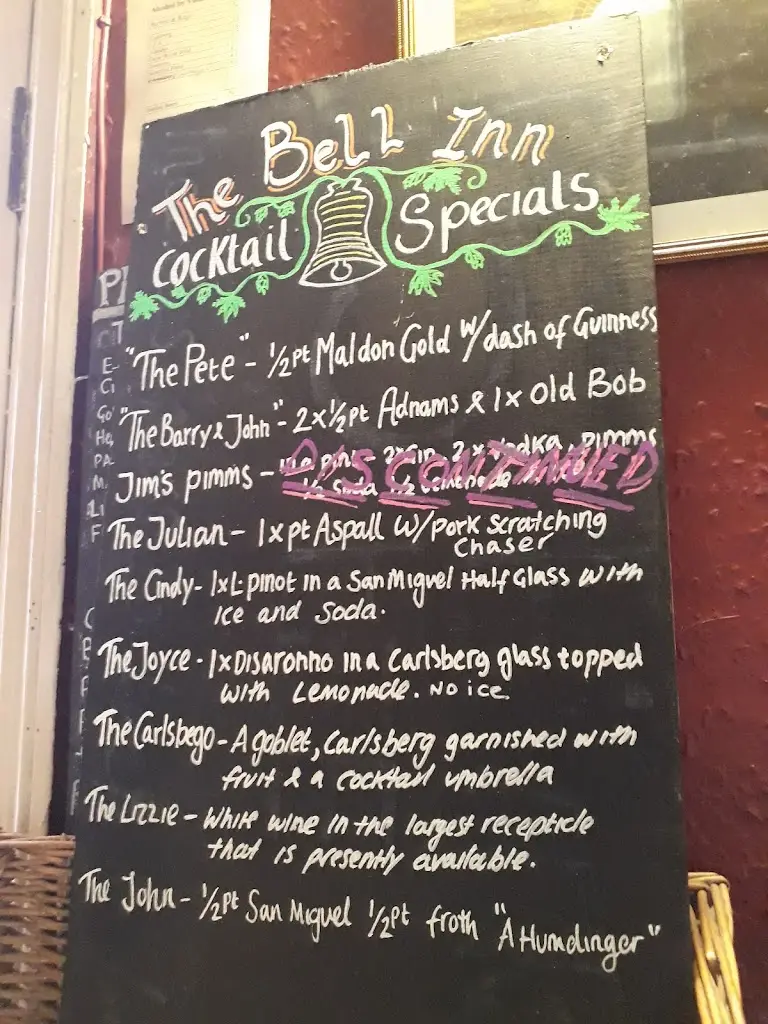 The Bell Inn
Cocktail Specials
"The Pete" - 1/2pt Maldon Gold w/dash of Guinness
"The Barry & John" - 2 x 1/2pt Adnams & 1x Old Bob
Jim's Pimms - DISCONTINUED
The Julian - 1x pt Aspall w/Pork Scratching
Chaser
The Cindy - 1x L. pinot in a San Miguel Half Glass with
ice and Soda.
The Joyce - 1x Disaronno in a Carlsberg glass topped
with Lemonade. No ice
The Carlsbego - A goblet, Carlsberg garnished with
fruit & a cocktail umbrella
The Lizzie - White wine in the largest recepticle
that is presently available.
The John - 1/2pt San Miguel 1/2pt froth "A Humdinger"